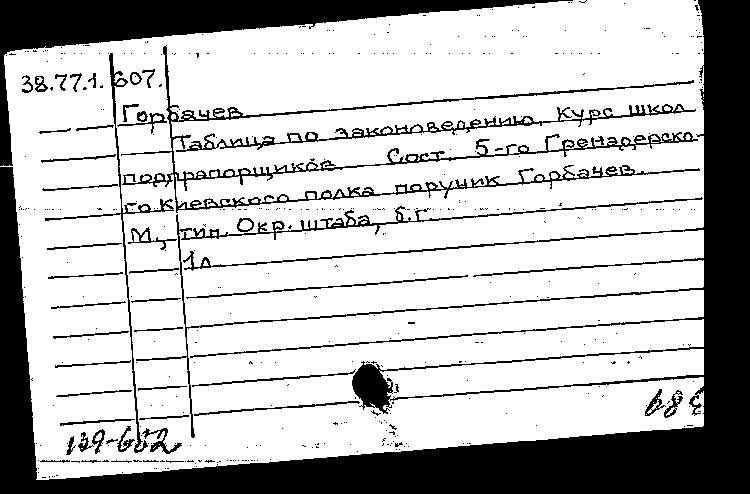 38.77.1. 607.
Горбачев
Таблица по законоведению. Курс школ
подпрапорщиков. Сост. 5-го Гренадерско-
го Киевского полка поручик Горбачев.
М., тип. Окр. штаба, б.г.
1л.
139-652